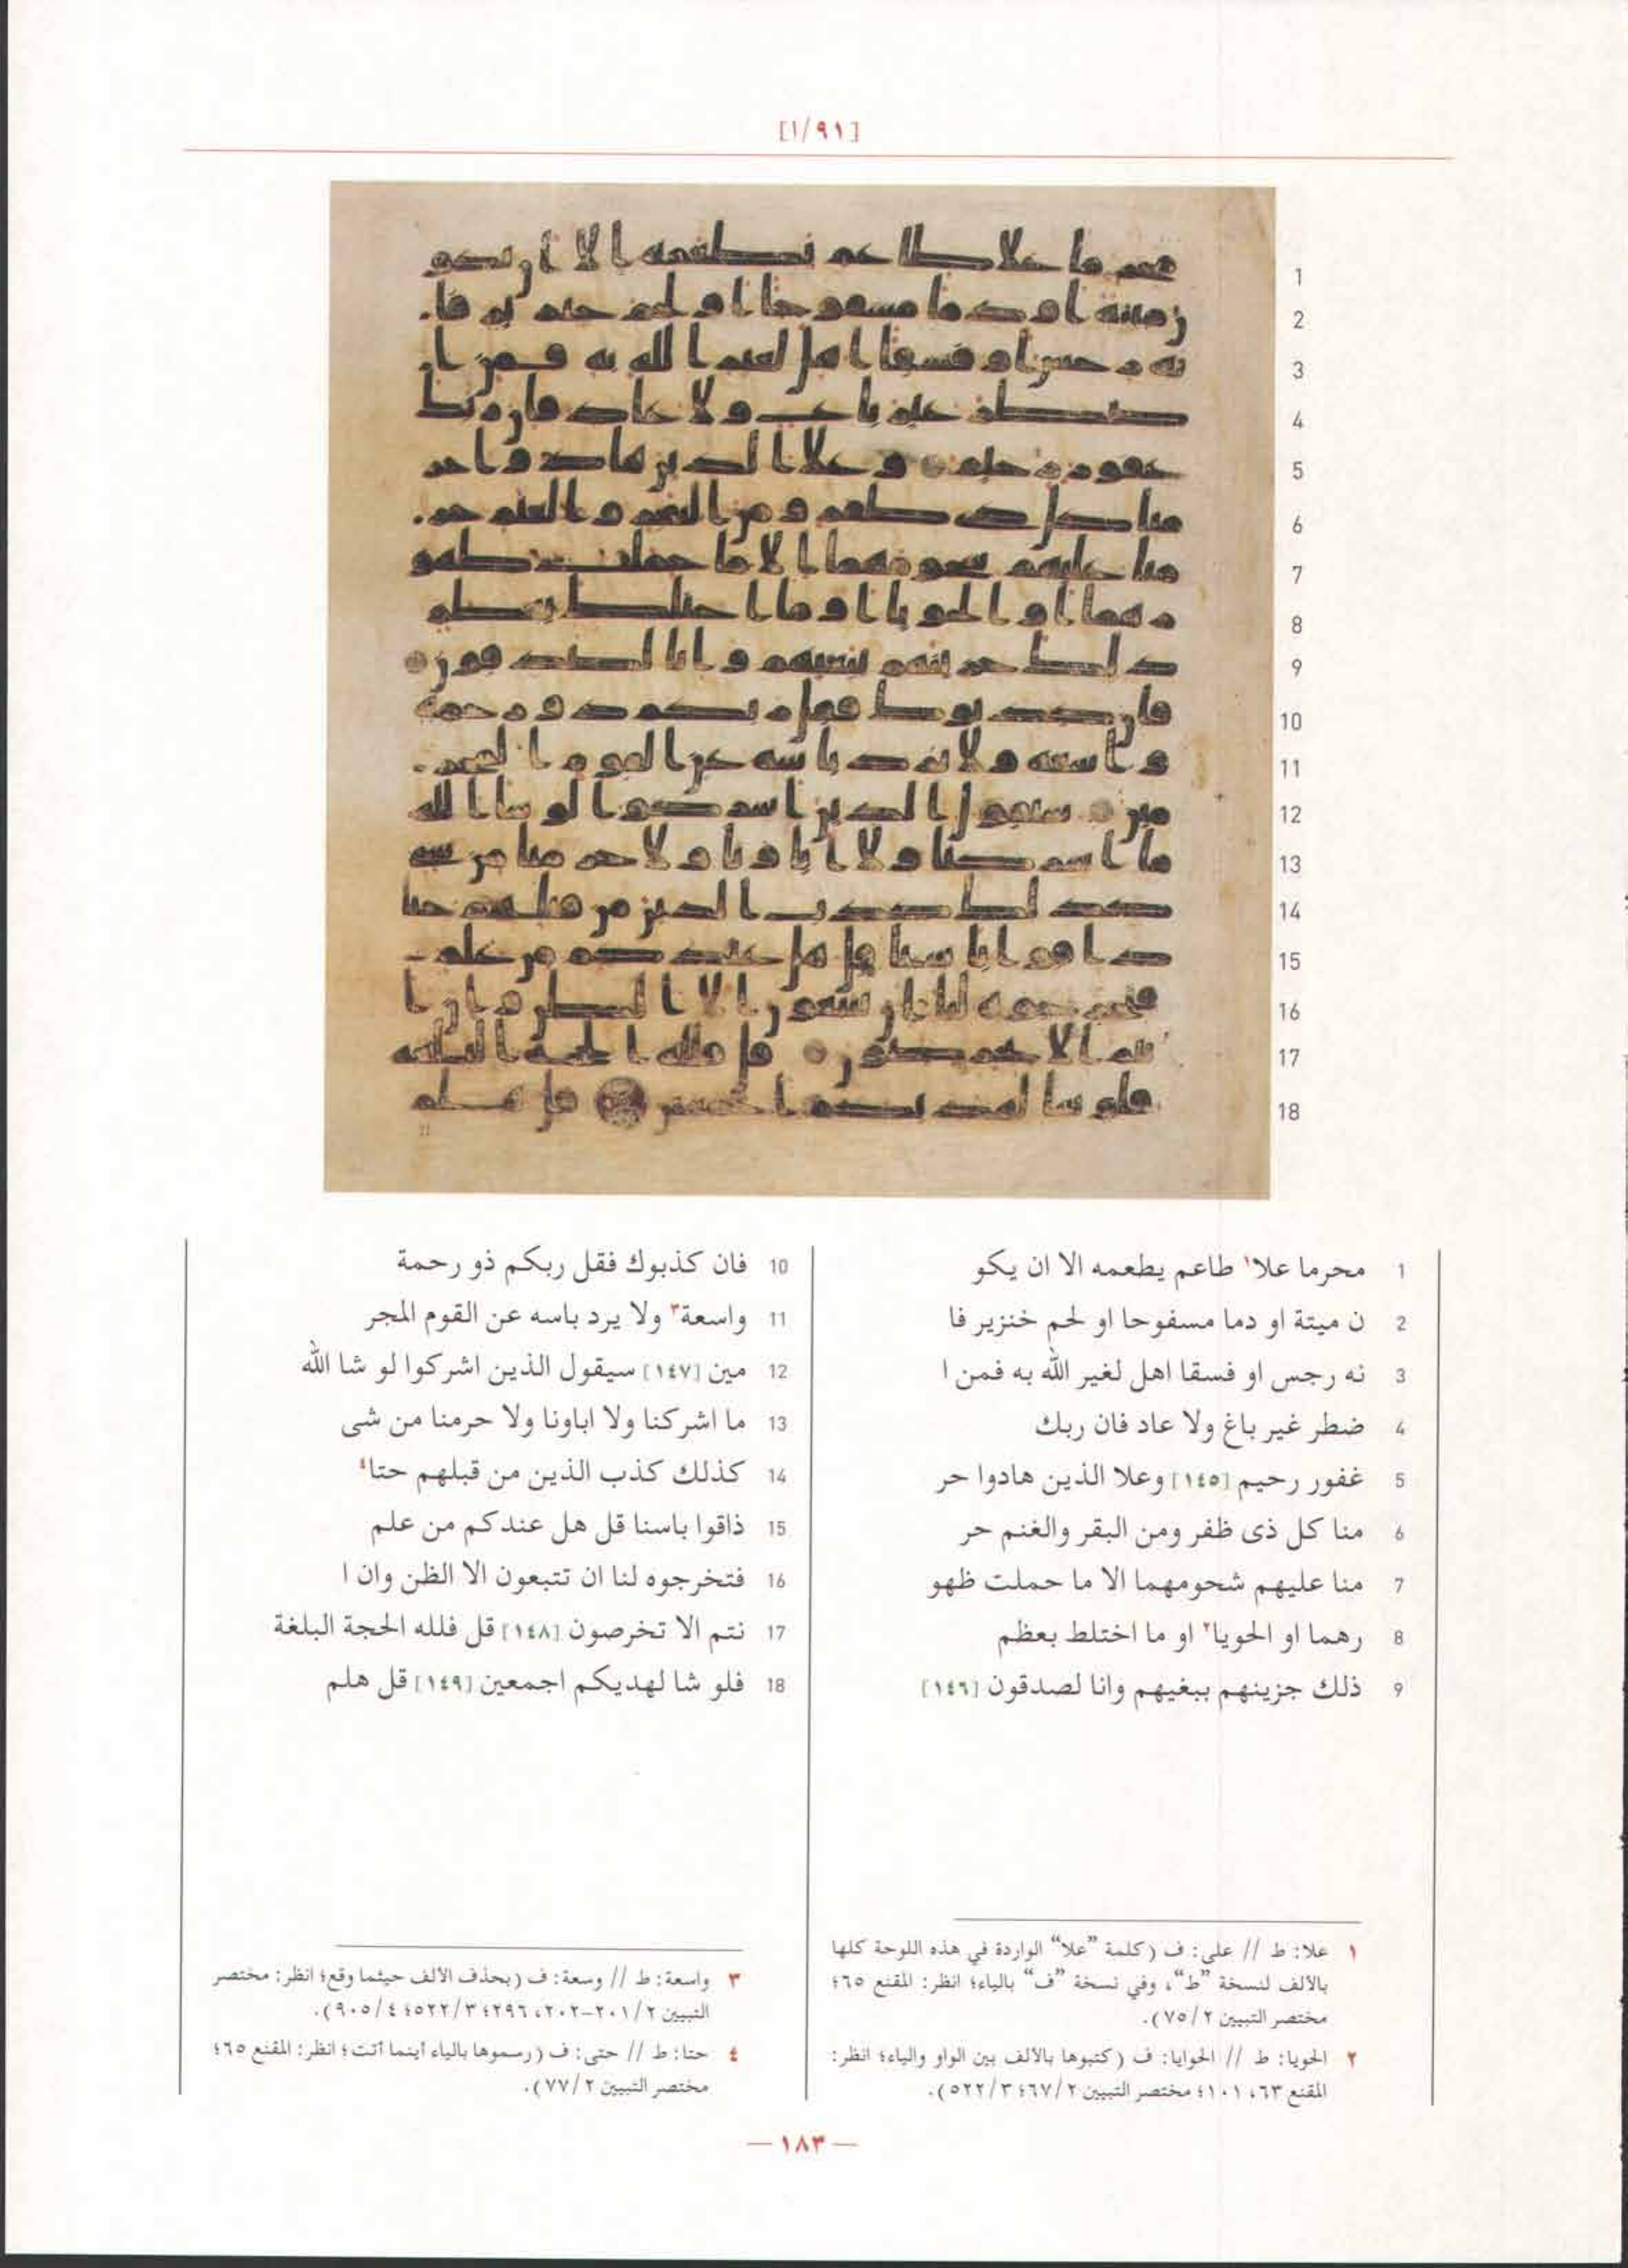 [١/٩١]
1 محرما علا١ طاعم يطعمه الا ان يكو
2 ن ميتة او دما مسفوحا او لحم خنزير فا
3 نه رجس او فسقا اهل لغير الله به فمن ا
4 ضطر غير باغ ولا عاد فان ربك
5 غفور رحيم [١٤٥] وعلا الذين هادوا حر
6 منا كل ذى ظفر ومن البقر والغنم حر
7 منا عليهم شحومهما الا ما حملت ظهو
8 رهما او الحويا٢ او ما اختلط بعظم
9 ذلك جزينهم ببغيهم وانا لصدقون [١٤٦]
10 فان كذبوك فقل ربكم ذو رحمة
11 واسعة٣ ولا يرد باسه عن القوم المجر
12 مين [١٤٧] سيقول الذين اشركوا لو شا الله
13 ما اشركنا ولا اباونا ولا حرمنا من شى
14 كذلك كذب الذين من قبلهم حتا٤
15 ذاقوا باسنا قل هل عندكم من علم
16 فتخرجوه لنا ان تتبعون الا الظن وان ا
17 نتم الا تخرصون [١٤٨] قل فلله الحجة البلغة
18 فلو شا لهديكم اجمعين [١٤٩] قل هلم
١ علا: ط // على: ف (كلمة ”علا“ الواردة في هذه اللوحة كلها
بالالف لنسخة ”ط“، وفي نسخة ”ف“ بالياء؛ انظر: المقنع ٦٥؛
مختصر التبيين ٧٥/٢).
٢ الحويا: ط // الحوايا: ف (كتبوها بالالف بين الواو والياء؛ انظر:
المقنع ٦٣، ١٠١؛ مختصر التبيين ٦٧/٢؛ ٥٢٢/٣).
٣ واسعة: ط // وسعة: ف (بحذف الالف حيثما وقع؛ انظر: مختصر
التبيين ٢٠١/٢-٢٠٢، ٢٩٦؛ ٥٢٢/٣؛ ٩٠٥/٤).
٤ حتا: ط // حتى: ف (رسموها بالياء أينما أتت؛ انظر: المقنع ٦٥؛
مختصر التبيين ٧٧/٢).
— ١٨٣ —